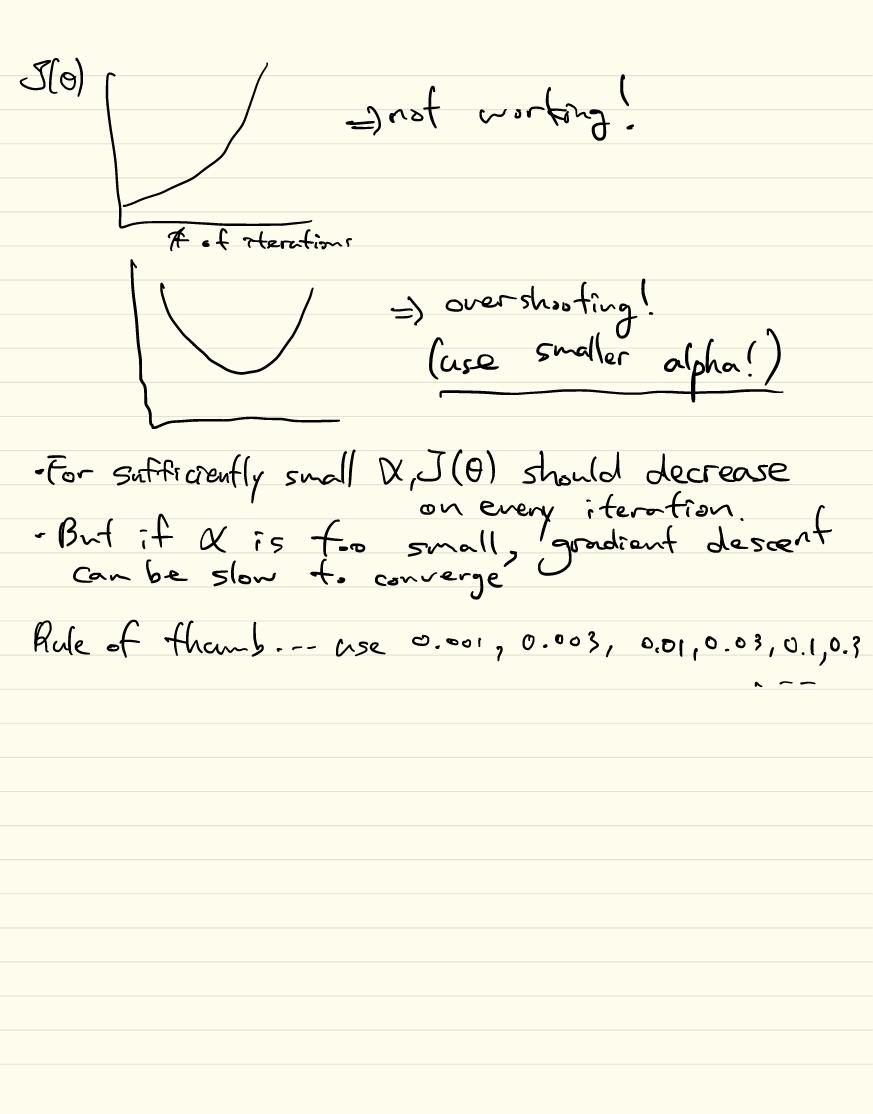 J(θ)
⇒ not working!
# of iterations
⇒ overshooting!
(use smaller alpha!)
• For sufficiently small α, J(θ) should decrease
on every iteration.
• But if α is too small, gradient descent
can be slow to converge
Rule of thumb... use 0.001, 0.003, 0.01, 0.03, 0.1, 0.3
...